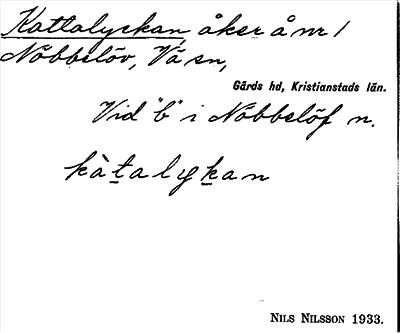 Kattalyckan, åker å nr 1
Nöbbelöv, Vä sn,
Gärds hd, Kristianstads län.
Vid "b" i Nöbbelöf n.
kàtalykan
NILS NILSSON 1933.